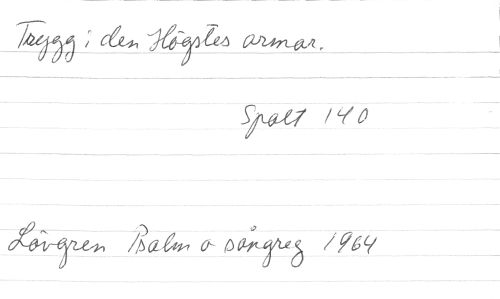 Trygg i den Högstes armar.
Spalt 140
Lövgren Psalm o sångreg 1964